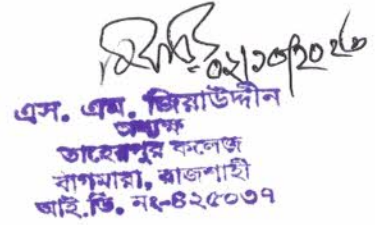 ০২/১০/২০২৩
এস. এম. জিয়াউদ্দীন
অধ্যক্ষ
তাহেরপুর কলেজ
বাগমারা, রাজশাহী
আই.ডি. নং-৪২৫০৩৭